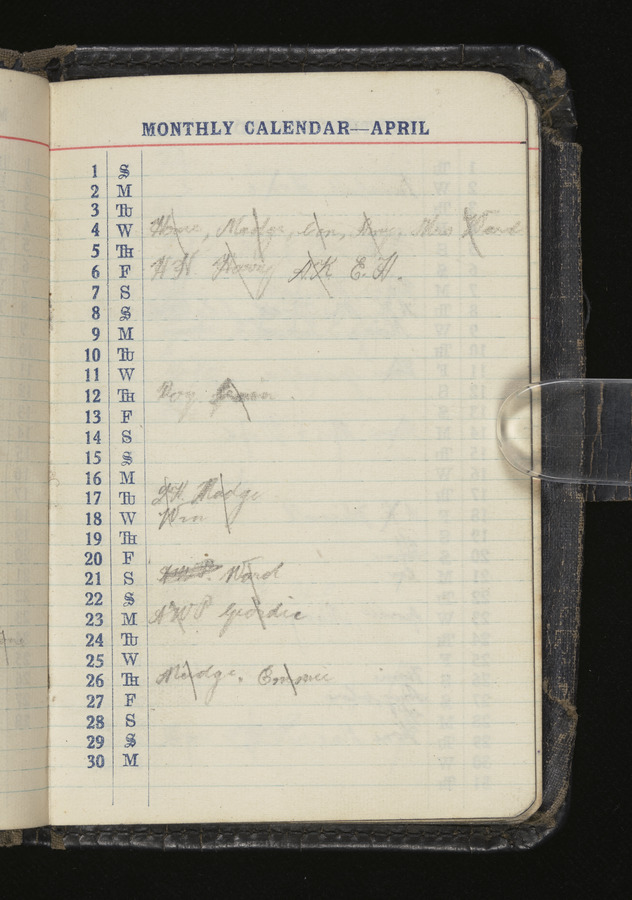 MONTHLY CALENDAR—APRIL
1 S
2 M
3 Tu
4 W Madge, Con, Mrs Ward
5 Th
6 F A.K E.H.
7 S
8 S
9 M
10 Tu
11 W
12 Th
13 F
14 S
15 S
16 M
17 Tu Madge
18 W Win
19 Th
20 F
21 S Ward
22 S
23 M AWP Geordie
24 Tu
25 W
26 Th Madge, Emmie
27 F
28 S
29 S
30 M